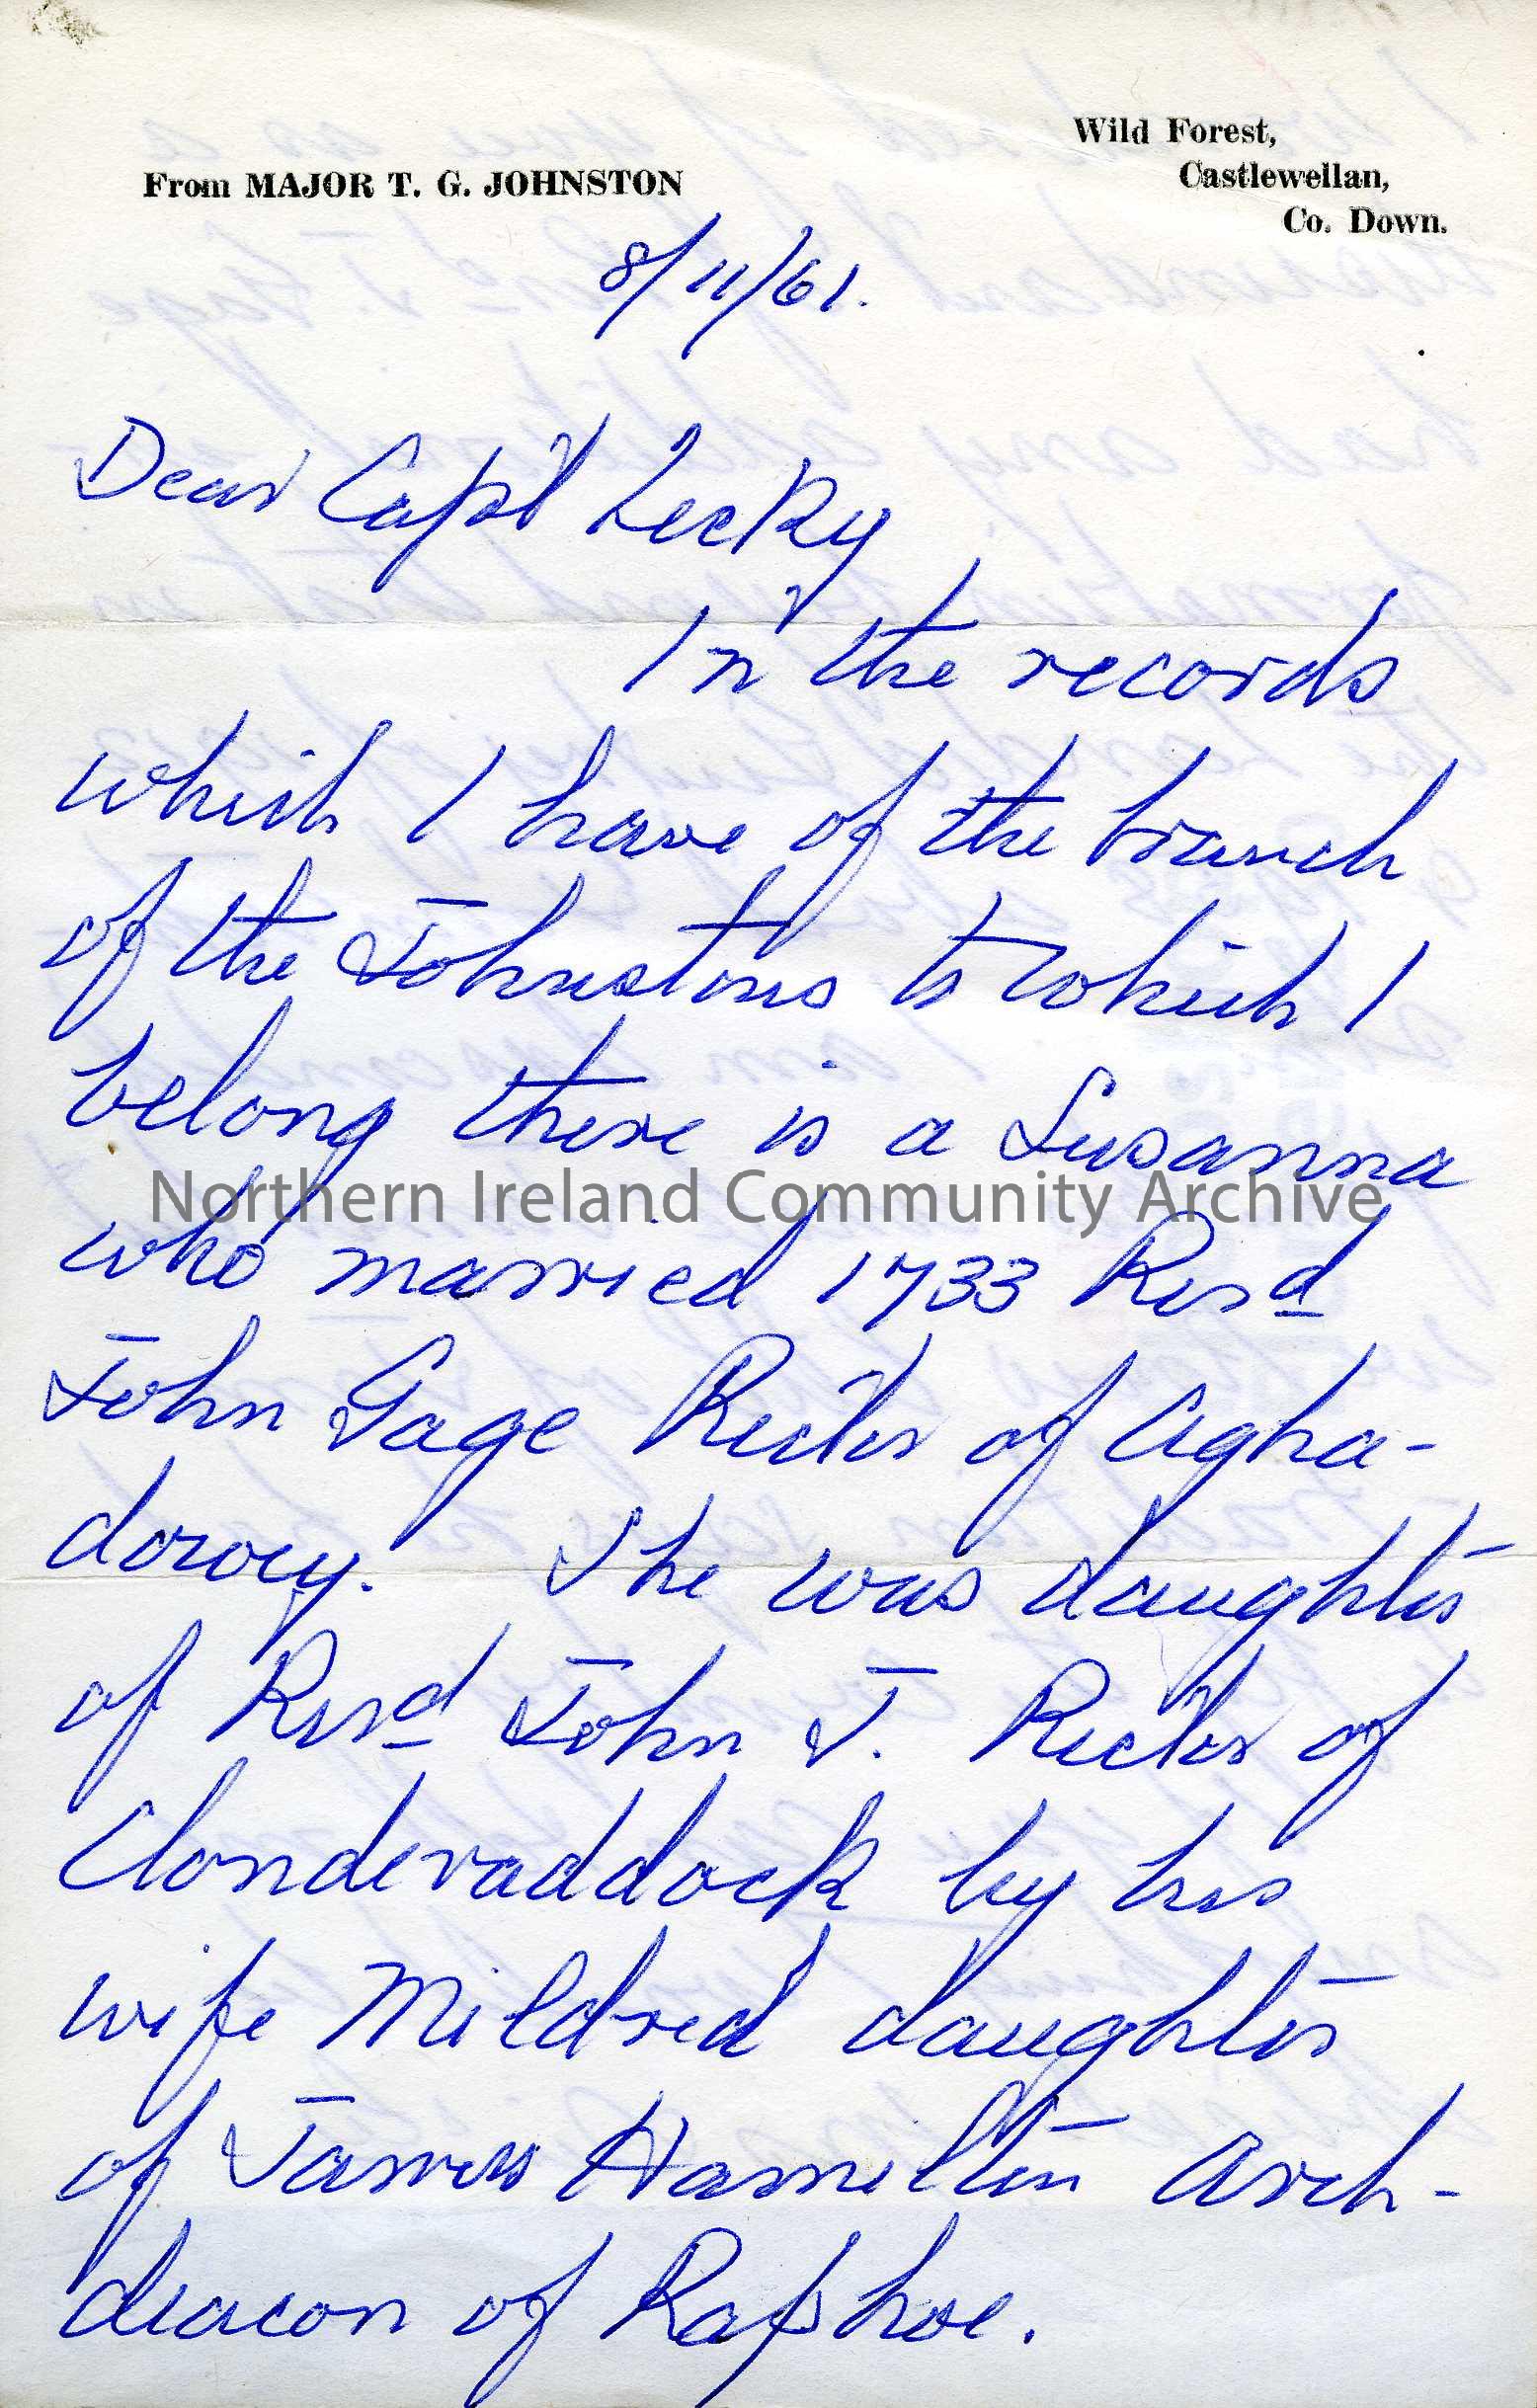 Wild Forest,
Castlewellan,
Co. Down.
From MAJOR T. G. JOHNSTON
8/11/61.
Dear Capt Lecky
In the records
which I have of the branch
of the Johnstons to which I
belong there is a Susanna
who married 1733 Revd
John Gage Rector of Agha-
dowey. She was daughter
of Revd John J. Rector of
Clondevaddock by his
wife Mildred daughter
of James Hamilton Arch-
deacon of Raphoe.
Northern Ireland Community Archive